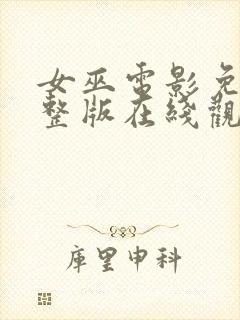 女巫电影免
整版在线觀
庫里申科